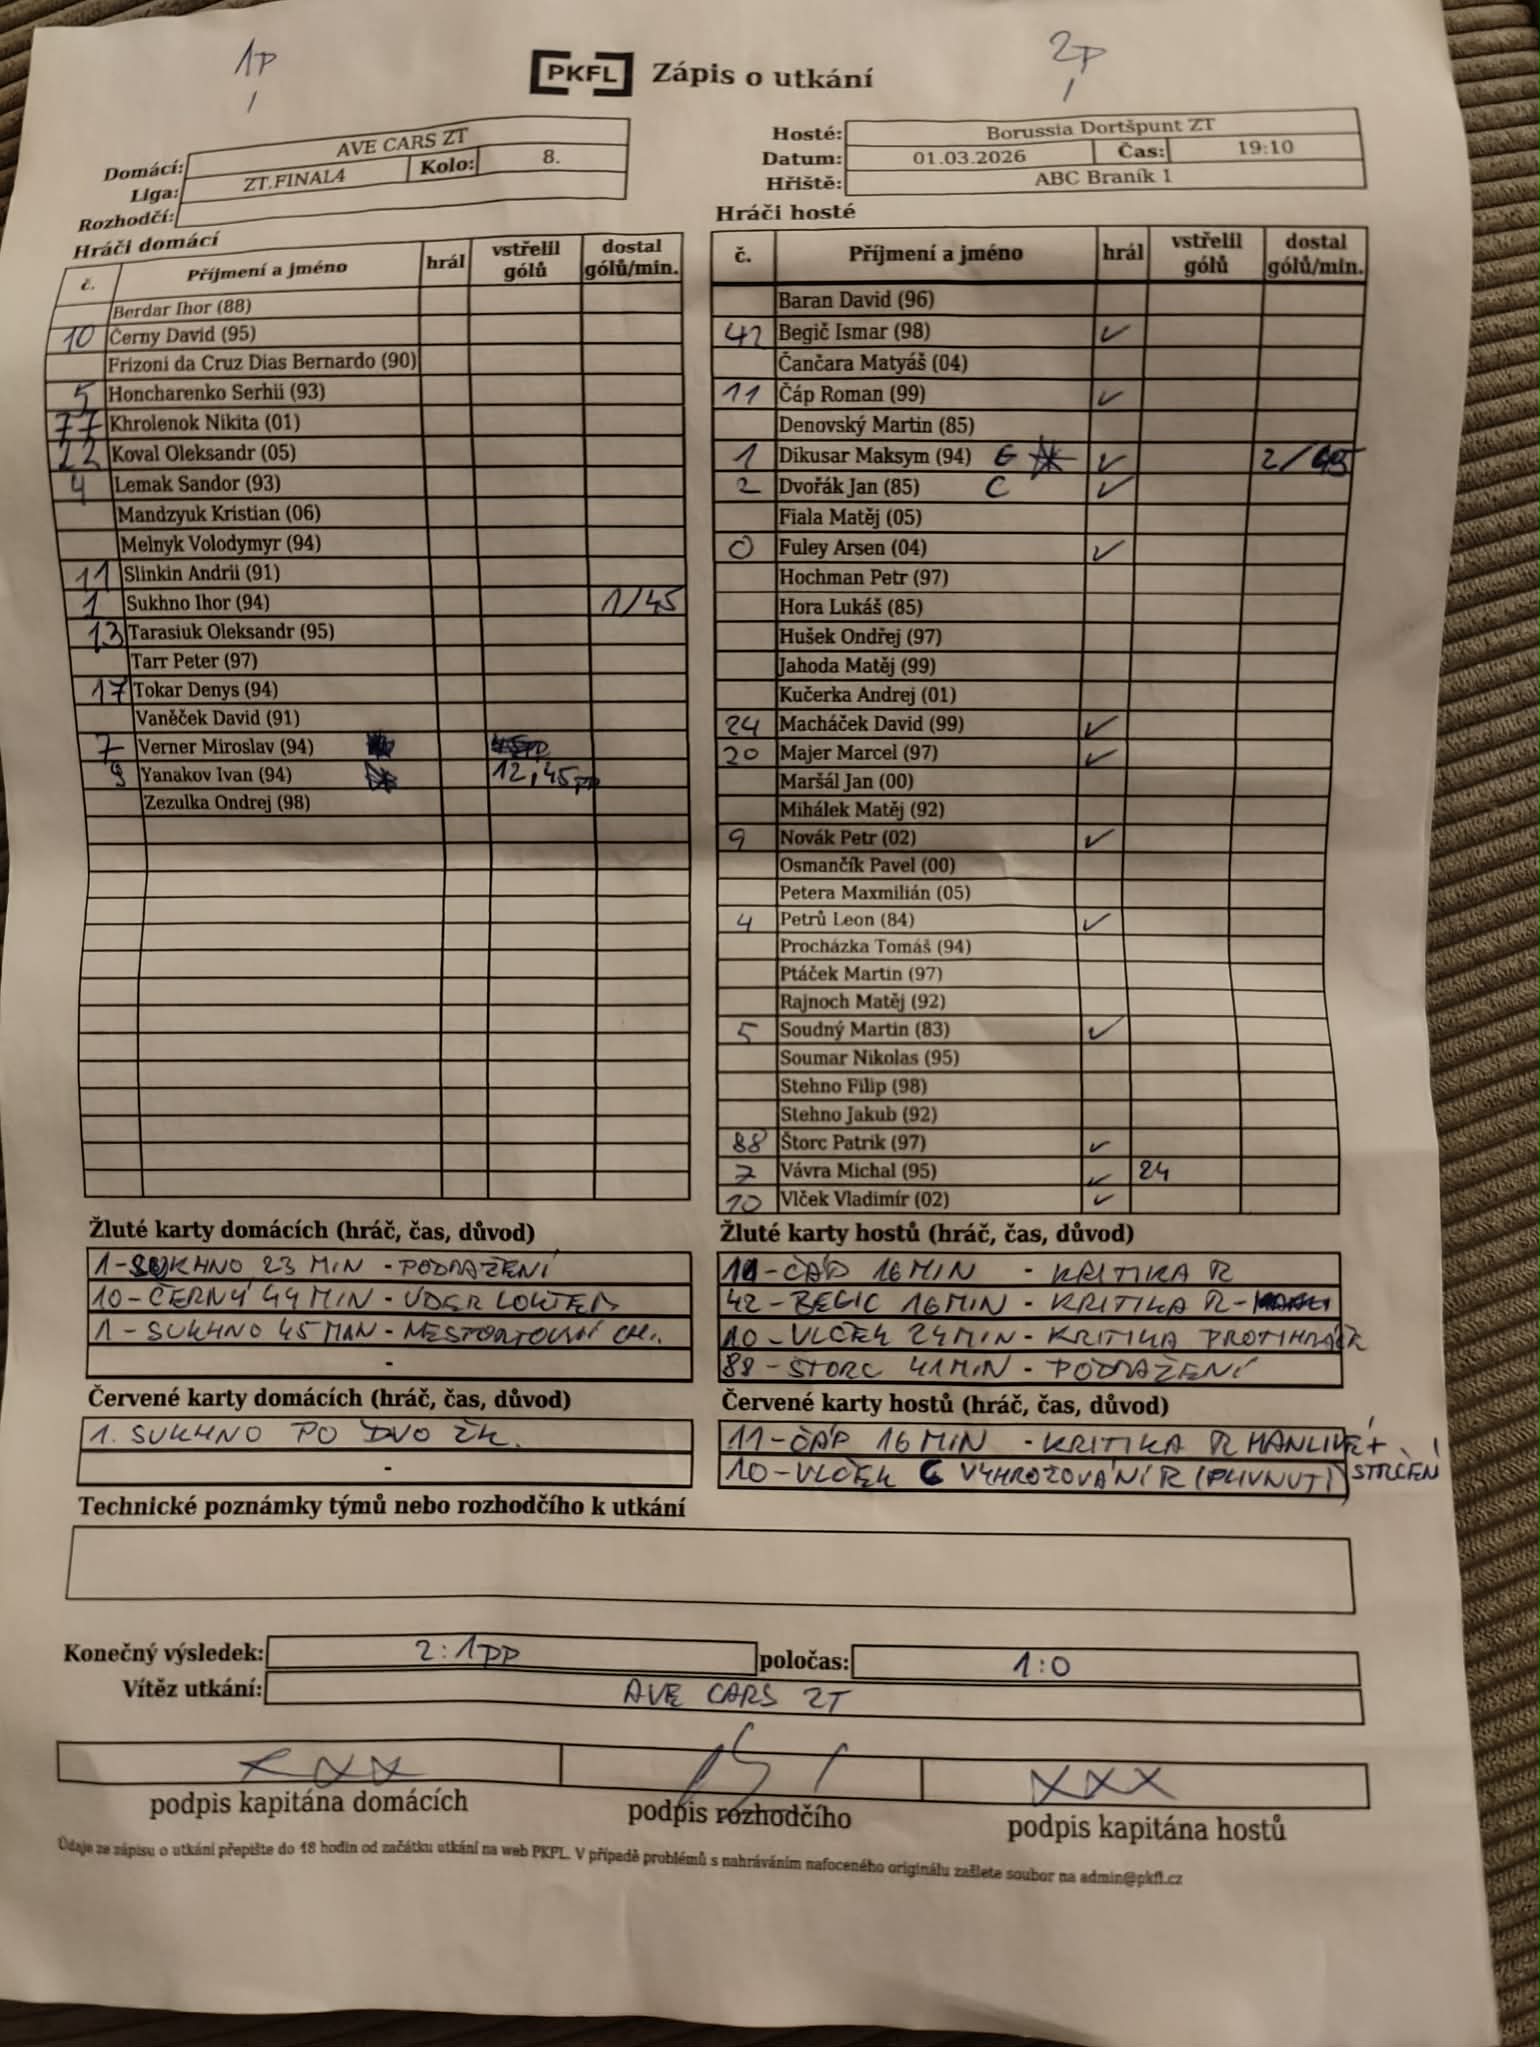 1P
2P
PKFL Zápis o utkání
Domácí: AVE CARS ZT
Liga: ZT.FINAL4 Kolo: 8.
Rozhodčí:
Hosté: Borussia Dortšpunt ZT
Datum: 01.03.2026 Čas: 19:10
Hřiště: ABC Braník 1
Hráči domácí
č. Příjmení a jméno hrál vstřelil gólů dostal gólů/min.
Berdar Ihor (88)
10 Černy David (95)
Frizoni da Cruz Dias Bernardo (90)
5 Honcharenko Serhii (93)
77 Khrolenok Nikita (01)
22 Koval Oleksandr (05)
4 Lemak Sandor (93)
Mandzyuk Kristian (06)
Melnyk Volodymyr (94)
11 Slinkin Andrii (91)
1 Sukhno Ihor (94) 1/45
13 Tarasiuk Oleksandr (95)
Tarr Peter (97)
17 Tokar Denys (94)
Vaněček David (91)
7 Verner Miroslav (94)
9 Yanakov Ivan (94) 12, 45pp
Zezulka Ondrej (98)
Hráči hosté
č. Příjmení a jméno hrál vstřelil gólů dostal gólů/min.
Baran David (96)
42 Begič Ismar (98) ✓
Čančara Matyáš (04)
11 Čáp Roman (99) ✓
Denovský Martin (85)
1 Dikusar Maksym (94) G ✓ 2/45
2 Dvořák Jan (85) C ✓
Fiala Matěj (05)
0 Fuley Arsen (04) ✓
Hochman Petr (97)
Hora Lukáš (85)
Hušek Ondřej (97)
Jahoda Matěj (99)
Kučerka Andrej (01)
24 Macháček David (99) ✓
20 Majer Marcel (97) ✓
Maršál Jan (00)
Mihálek Matěj (92)
9 Novák Petr (02) ✓
Osmančík Pavel (00)
Petera Maxmilián (05)
4 Petrů Leon (84) ✓
Procházka Tomáš (94)
Ptáček Martin (97)
Rajnoch Matěj (92)
5 Soudný Martin (83) ✓
Soumar Nikolas (95)
Stehno Filip (98)
Stehno Jakub (92)
88 Štorc Patrik (97) ✓
7 Vávra Michal (95) ✓ 24
10 Vlček Vladimír (02) ✓
Žluté karty domácích (hráč, čas, důvod)
1-SUKHNO 23 MIN - PODRAŽENÍ
10-ČERNÝ 44 MIN - ÚDER LOKTEM
1 - SUKHNO 45 MIN - NESPORTOVNÍ CH.
-
Červené karty domácích (hráč, čas, důvod)
1. SUKHNO PO DVO ŽK.
-
Žluté karty hostů (hráč, čas, důvod)
11-ČÁP 16 MIN - KRITIKA R
42-BEGIC 16 MIN - KRITIKA R
10-VLČEK 24 MIN - KRITIKA PROTIHRÁČE
88-ŠTORC 41 MIN - PODRAŽENÍ
Červené karty hostů (hráč, čas, důvod)
11-ČÁP 16 MIN - KRITIKA R HANLIVĚ +
10-VLČEK VYHROŽOVÁNÍ R (PLIVNUTÍ) STRČENÍ
Technické poznámky týmů nebo rozhodčího k utkání
Konečný výsledek: 2:1pp poločas: 1:0
Vítěz utkání: AVE CARS ZT
XXX
XXX
podpis kapitána domácích podpis rozhodčího podpis kapitána hostů
Údaje ze zápisu o utkání přepište do 18 hodin od začátku utkání na web PKFL. V případě problémů s nahráváním nafoceného originálu zašlete soubor na admin@pkfl.cz